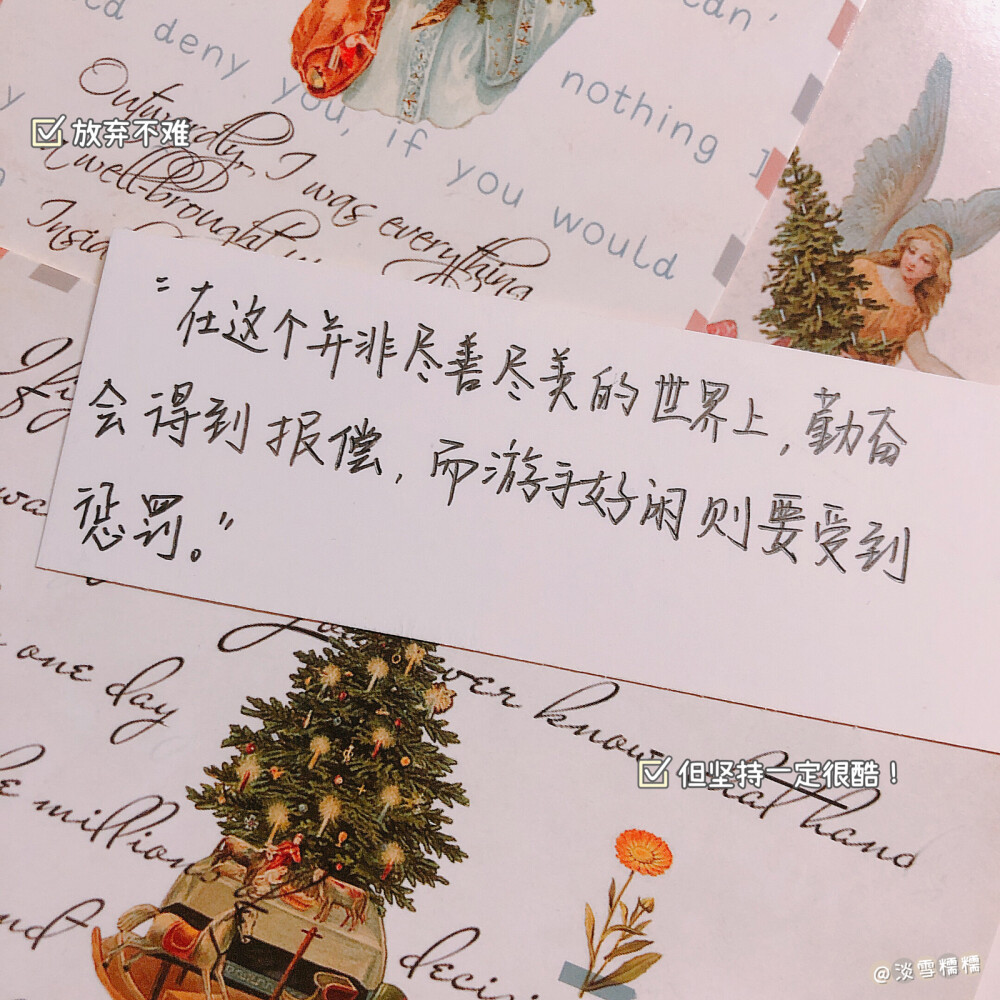 can'
deny you, if you would
nothing I
Outwardly, I was everything
a well-brought u
Insid
放弃不难
"在这个并非尽善尽美的世界上,勤奋
会得到报偿,而游手好闲则要受到
惩罚。"
ever know what hand
one day
但坚持一定很酷!
million
decisi
@淡雪糯糯